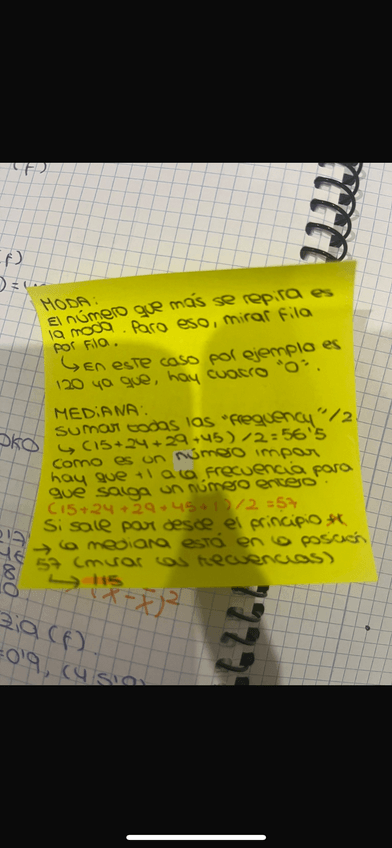 (f)
f)
MODA:
El número que más se repita es
la moda. Para eso, mirar fila
por fila.
↳ En este caso por ejemplo es
120 ya que, hay cuatro "0".
MEDIANA:
Sumar todas las "frequency"/2
↳ (15+24+29+45)/2=56'5
como es un número impar
hay que +1 a la frecuencia para
que salga un número entero.
(15+24+29+45+1)/2=57
Si sale par desde el principio
→ la mediana está en la posición
57 (mirar las frecuencias)
↳ 115
(x-x̄)²
zia (f).